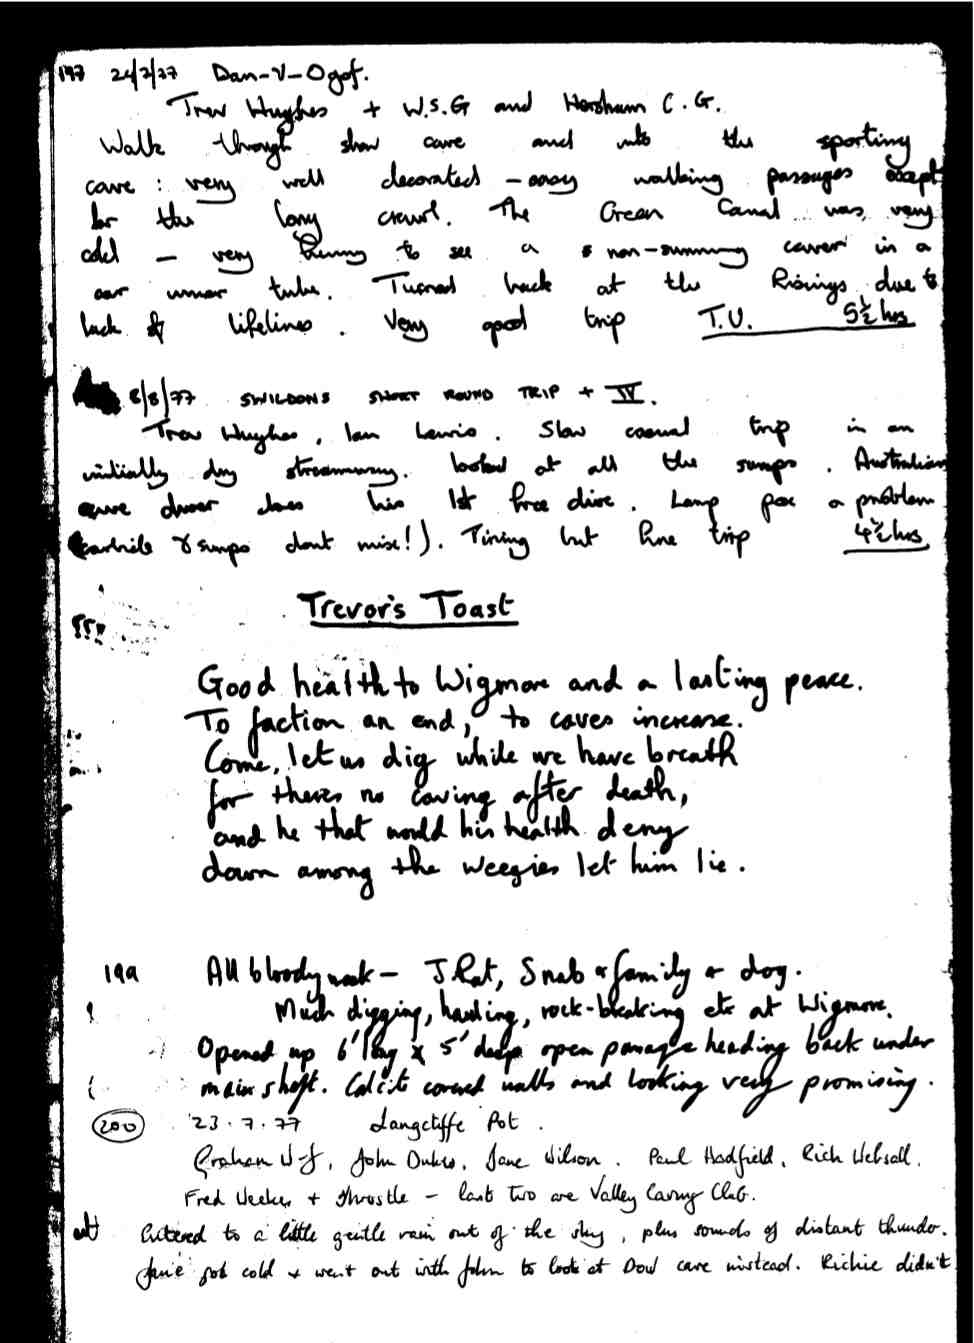 197 24/7/77 Dan-Y-Ogof.
Trev Hughes + W.S.G and Horsham C.G.
Walk through show cave and into the sporting
cave : very well decorated - easy walking passages except
for the long crawl. The Green Canal was very
cold - very funny to see a non-swimming caver in a
car inner tube. Turned back at the Risings due to
lack of lifelines. Very good trip T.U. 5½ hrs
8/8/77 SWILDONS SHORT ROUND TRIP + IV.
Trev Hughes, Ian Lewis. Slow casual trip in an
initially dry streamway. looked at all the sumps. Australian
cave diver does his 1st free dive. Lamp pox a problem
(carbide & sumps dont mix!). Tiring but fine trip 4½ hrs
Trevor's Toast
Good health to Wigmore and a lasting peace.
To faction an end, to caves increase.
Come, let us dig while we have breath
for theres no caving after death,
and he that would his health deny
down among the weegies let him lie.
199 All bloody week - J.Rat, Snab & family & dog.
Much digging, hauling, rock-breaking etc at Wigmore.
Opened up 6' long x 5' deep open passage heading back under
main shaft. Calcite covered walls and looking very promising.
200 23.7.77 Langcliffe Pot.
Graham W-J, John Dukes, Jane Wilson. Paul Hadfield, Rich Websall.
Fred Weekes + Throstle - last two are Valley Caving Club.
Entered to a little gentle rain out of the sky, plus sounds of distant thunder.
Jane got cold & went out with John to look at Dow cave instead. Richie didn't